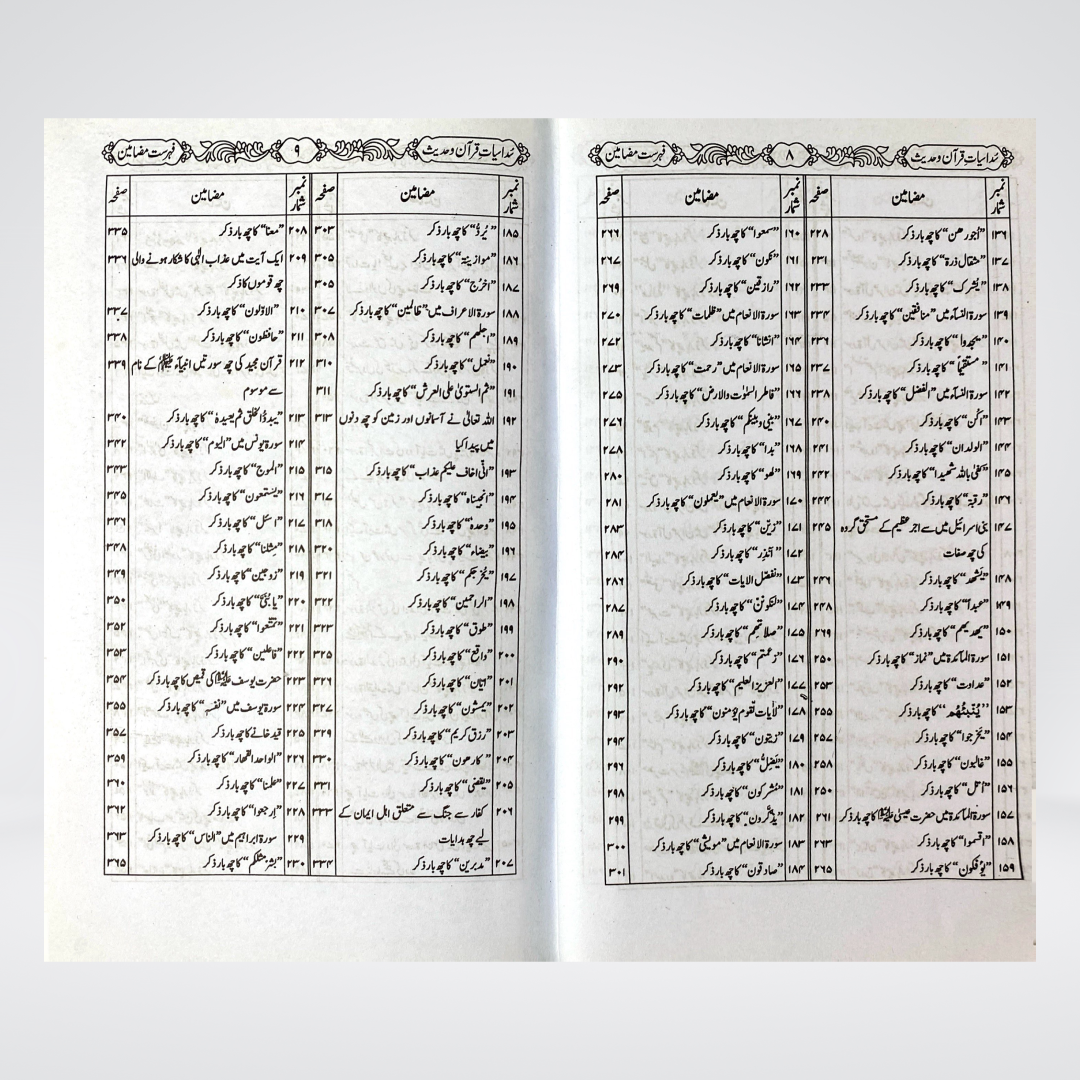 سُداسیاتِ قرآن وحدیث
۸
فہرست مضامین
نمبر شمار مضامین صفحہ
۱۳۶ ”اُجورھن“ کا چھ بار ذکر ۲۲۸
۱۳۷ ”مثقال ذرۃ“ کا چھ بار ذکر ۲۳۱
۱۳۸ ”یُشرک“ کا چھ بار ذکر ۲۳۳
۱۳۹ سورۃ النسآء میں ”منافقین“ کا چھ بار ذکر ۲۳۴
۱۴۰ ”یجدوا“ کا چھ بار ذکر ۲۳۶
۱۴۱ ”مستقیماً“ کا چھ بار ذکر ۲۳۷
۱۴۲ سورۃ النسآء میں ”الفضل“ کا چھ بار ذکر ۲۳۸
۱۴۳ ”اَکُن“ کا چھ بار ذکر ۲۴۰
۱۴۴ ”الولدان“ کا چھ بار ذکر ۲۴۱
۱۴۵ ”کفٰی باللہ شھیدا“ کا چھ بار ذکر ۲۴۲
۱۴۶ ”رقبۃ“ کا چھ بار ذکر ۲۴۴
۱۴۷ بنی اسرائیل میں سے اجر عظیم کے مستحق گروہ ۲۴۵
کی چھ صفات
۱۴۸ ”یَشھد“ کا چھ بار ذکر ۲۴۶
۱۴۹ ”عبدا“ کا چھ بار ذکر ۲۴۸
۱۵۰ ”یھدیھم“ کا چھ بار ذکر ۲۶۹
۱۵۱ سورۃ المآئدۃ میں ”نماز“ کا چھ بار ذکر ۲۵۰
۱۵۲ ”عداوت“ کا چھ بار ذکر ۲۵۳
۱۵۳ ”یُنَبِّئُھُم“ کا چھ بار ذکر ۲۵۵
۱۵۴ ”یخرجوا“ کا چھ بار ذکر ۲۵۷
۱۵۵ ”غالبون“ کا چھ بار ذکر ۲۵۸
۱۵۶ ”اُحل“ کا چھ بار ذکر ۲۵۰
۱۵۷ سورۃ المآئدۃ میں حضرت عیسیٰ علیہ السلام کا چھ بار ذکر ۲۶۱
۱۵۸ ”اقسموا“ کا چھ بار ذکر ۲۶۳
۱۵۹ ”یؤفکون“ کا چھ بار ذکر ۲۶۵
نمبر شمار مضامین صفحہ
۱۶۰ ”سمعوا“ کا چھ بار ذکر ۲۶۶
۱۶۱ ”نکون“ کا چھ بار ذکر ۲۶۷
۱۶۲ ”رازقین“ کا چھ بار ذکر ۲۶۹
۱۶۳ سورۃ الانعام میں ”ظلمات“ کا چھ بار ذکر ۲۷۰
۱۶۴ ”انشانا“ کا چھ بار ذکر ۲۷۲
۱۶۵ سورۃ الانعام میں ”رحمت“ کا چھ بار ذکر ۲۷۳
۱۶۶ ”فاطر السمٰوٰت والارض“ کا چھ بار ذکر ۲۷۵
۱۶۷ ”بینی وبینکم“ کا چھ بار ذکر ۲۷۶
۱۶۸ ”بدا“ کا چھ بار ذکر ۲۷۸
۱۶۹ ”لھو“ کا چھ بار ذکر ۲۸۰
۱۷۰ سورۃ الانعام میں ”یعملون“ کا چھ بار ذکر ۲۸۱
۱۷۱ ”زیّن“ کا چھ بار ذکر ۲۸۳
۱۷۲ ”اَنذِر“ کا چھ بار ذکر ۲۸۴
۱۷۳ ”نفصّل الایات“ کا چھ بار ذکر ۲۸۶
۱۷۴ ”لنکونن“ کا چھ بار ذکر ۲۸۷
۱۷۵ ”صلاتھم“ کا چھ بار ذکر ۲۸۹
۱۷۶ ”زعمتم“ کا چھ بار ذکر ۲۹۰
۱۷۷ ”العزیز العلیم“ کا چھ بار ذکر ۲۹۲
۱۷۸ ”لاٰیات لقوم یؤمنون“ کا چھ بار ذکر ۲۹۳
۱۷۹ ”زیتون“ کا چھ بار ذکر ۲۹۴
۱۸۰ ”یَضِلُّ“ کا چھ بار ذکر ۲۹۶
۱۸۱ ”مشرکون“ کا چھ بار ذکر ۲۹۸
۱۸۲ ”یذّکّرون“ کا چھ بار ذکر ۲۹۹
۱۸۳ سورۃ الانعام میں ”مویشی“ کا چھ بار ذکر ۳۰۰
۱۸۴ ”صادقون“ کا چھ بار ذکر ۳۰۱
سُداسیاتِ قرآن وحدیث
۹
فہرست مضامین
نمبر شمار مضامین صفحہ
۱۸۵ ”یُرَدُّ“ کا چھ بار ذکر ۳۰۳
۱۸۶ ”موازینہ“ کا چھ بار ذکر ۳۰۵
۱۸۷ ”اخرُج“ کا چھ بار ذکر ۳۰۵
۱۸۸ سورۃ الاعراف میں ”ظالمین“ کا چھ بار ذکر ۳۰۷
۱۸۹ ”اجلھم“ کا چھ بار ذکر ۳۰۸
۱۹۰ ”نعمل“ کا چھ بار ذکر ۳۱۰
۱۹۱ ”ثم استویٰ علی العرش“ کا چھ بار ذکر ۳۱۱
۱۹۲ اللہ تعالیٰ نے آسمانوں اور زمین کو چھ دنوں ۳۱۳
میں پیدا کیا
۱۹۳ ”انّی اخاف علیکم عذاب“ کا چھ بار ذکر ۳۱۵
۱۹۴ ”انجیناہ“ کا چھ بار ذکر ۳۱۷
۱۹۵ ”وحدہ“ کا چھ بار ذکر ۳۱۸
۱۹۶ ”بیضاء“ کا چھ بار ذکر ۳۲۰
۱۹۷ ”یُخرجکم“ کا چھ بار ذکر ۳۲۱
۱۹۸ ”الراحمین“ کا چھ بار ذکر ۳۲۲
۱۹۹ ”طوق“ کا چھ بار ذکر ۳۲۳
۲۰۰ ”واقع“ کا چھ بار ذکر ۳۲۵
۲۰۱ ”ایّان“ کا چھ بار ذکر ۳۲۶
۲۰۲ ”یمشون“ کا چھ بار ذکر ۳۲۷
۲۰۳ ”رزق کریم“ کا چھ بار ذکر ۳۲۹
۲۰۴ ”کارھون“ کا چھ بار ذکر ۳۳۰
۲۰۵ ”یقضی“ کا چھ بار ذکر ۳۳۱
۲۰۶ کفار سے جنگ سے متعلق اہل ایمان کے ۳۳۳
لیے چھ ہدایات
۲۰۷ ”مدبرین“ کا چھ بار ذکر ۳۳۴
نمبر شمار مضامین صفحہ
۲۰۸ ”معنا“ کا چھ بار ذکر ۳۳۵
۲۰۹ ایک آیت میں عذاب الٰہی کا شکار ہونے والی ۳۳۶
چھ قوموں کا ذکر
۲۱۰ ”الاوّلون“ کا چھ بار ذکر ۳۳۷
۲۱۱ ”حافظون“ کا چھ بار ذکر ۳۳۸
۲۱۲ قرآن مجید کی چھ سورتیں انبیآء کے نام ۳۳۹
سے موسوم
۲۱۳ ”یبدؤا الخلق ثم یعیدہ“ کا چھ بار ذکر ۳۴۰
۲۱۴ سورۃ یونس میں ”الیوم“ کا چھ بار ذکر ۳۴۲
۲۱۵ ”الموج“ کا چھ بار ذکر ۳۴۳
۲۱۶ ”یستمعون“ کا چھ بار ذکر ۳۴۵
۲۱۷ ”اسئل“ کا چھ بار ذکر ۳۴۶
۲۱۸ ”مثلنا“ کا چھ بار ذکر ۳۴۸
۲۱۹ ”زوجین“ کا چھ بار ذکر ۳۴۹
۲۲۰ ”یا بُنَیَّ“ کا چھ بار ذکر ۳۵۰
۲۲۱ ”تمتّعوا“ کا چھ بار ذکر ۳۵۲
۲۲۲ ”فاعلین“ کا چھ بار ذکر ۳۵۳
۲۲۳ حضرت یوسف علیہ السلام کی قمیص کا چھ بار ذکر ۳۵۴
۲۲۴ سورۃ یوسف میں ”نفسہ“ کا چھ بار ذکر ۳۵۵
۲۲۵ قید خانے کا چھ بار ذکر ۳۵۷
۲۲۶ ”الواحد القھار“ کا چھ بار ذکر ۳۵۹
۲۲۷ ”علمنا“ کا چھ بار ذکر ۳۶۰
۲۲۸ ”اِرجعوا“ کا چھ بار ذکر ۳۶۲
۲۲۹ سورۃ ابراہیم میں ”الناس“ کا چھ بار ذکر ۳۶۳
۲۳۰ ”بشر مثلکم“ کا چھ بار ذکر ۳۶۵